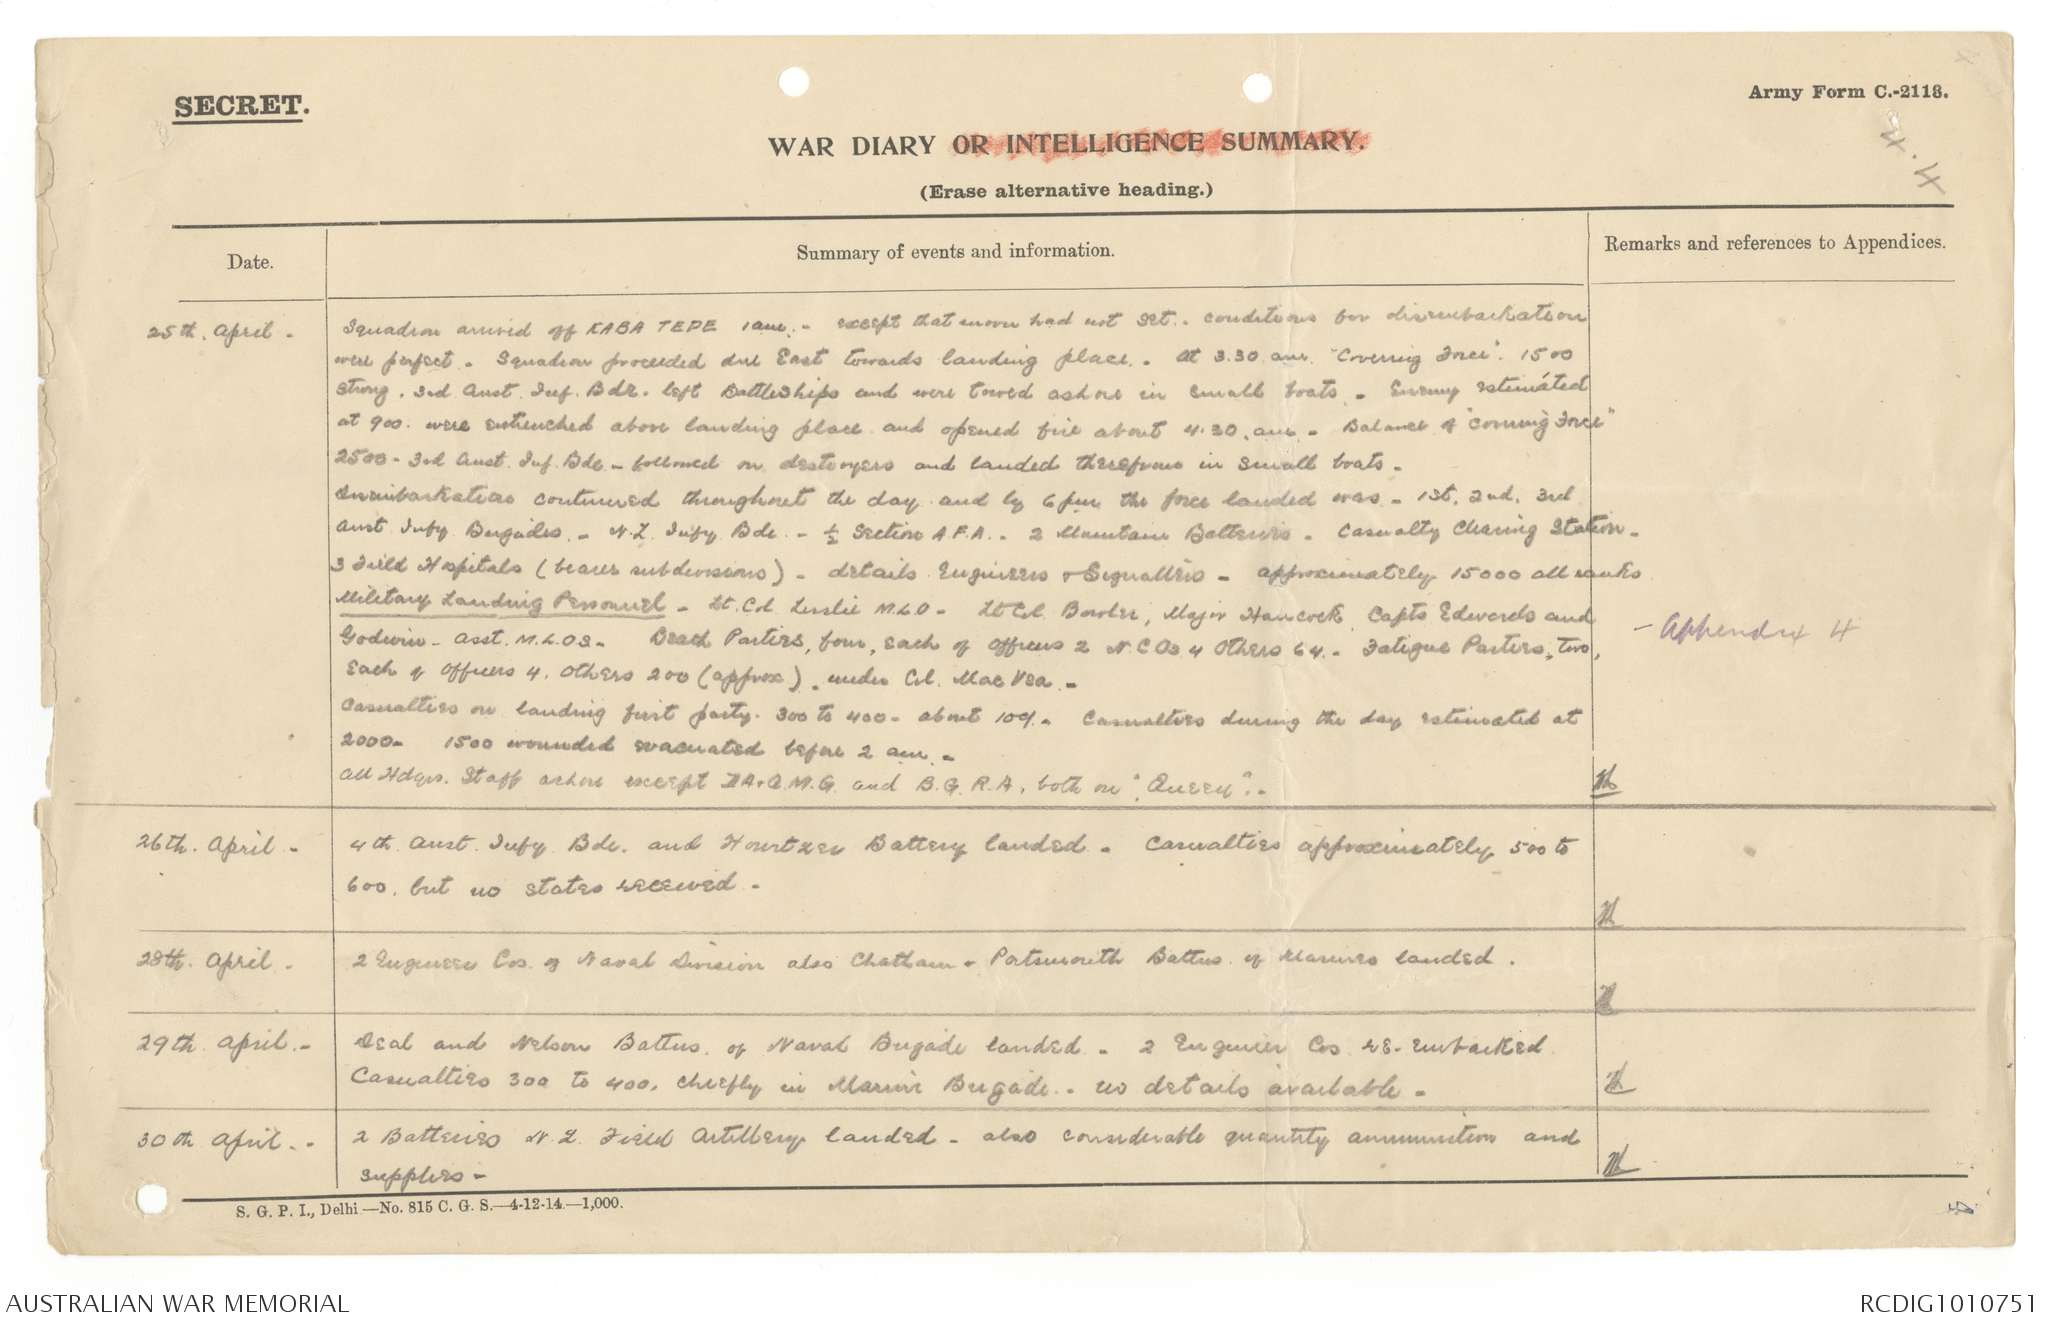 SECRET.
Army Form C.-2118.
4.
WAR DIARY OR INTELLIGENCE SUMMARY.
(Erase alternative heading.)
Date.
Summary of events and information.
Remarks and references to Appendices.
25th. April - Squadron arrived off KABA TEPE 1 am. - except that moon had not set - conditions for disembarkation
were perfect - Squadron proceeded due East towards landing place. - At 3.30 am. "Covering Force". 1500
strong. 3rd Aust. Inf. Bde. left Battleships and were towed ashore in small boats. - Enemy estimated
at 900. were entrenched above landing place and opened fire about 4.30. am. - Balance of "Covering Force"
2500 - 3rd Aust. Inf. Bde - followed on destroyers and landed therefrom in small boats -
Disembarkation continued throughout the day and by 6 pm the force landed was - 1st. 2nd. 3rd
Aust Infy Brigades. - N.Z. Infy Bde. - ½ Section A.F.A. - 2 Mountain Batteries - Casualty Clearing Station -
3 Field Hospitals (bearer subdivisions) - details Engineers & Signallers - approximately 15000 all ranks
Military Landing Personnel - Lt. Col. Lesslie M.L.O - Lt Col. Bowler, Major Hancock, Capts Edwards and
Godwin - Asst. M.L.OS - Beach Parties, four, each of Officers 2 N.C.Os 4 Others 64. - Fatigue Parties, two,
- Appendix 4
Each of Officers 4. Others 200 (approx). under Col. MacVea. -
Casualties on landing first party. 300 to 400 - about 10%. - Casualties during the day estimated at
2000 - 1500 wounded evacuated before 2 am. -
All Hdqrs. Staff ashore except A.A. & Q.M.G. and B.G.R.A. both on "Queen". -
26th. April - 4th Aust. Infy Bde. and Howitzer Battery landed - Casualties approximately 500 to
600. but no states received -
28th. April - 2 Engineer Cos. of Naval Division also Chatham & Portsmouth Battns. of Marines landed.
29th April. - Deal and Nelson Battns. of Naval Brigade landed - 2 Engineer Cos. re-embarked
Casualties 300 to 400, chiefly in Marine Brigade. - no details available -
30th April. - 2 Batteries N.Z. Field Artillery landed - also considerable quantity ammunition and
supplies -
S. G. P. I., Delhi —No. 815 C. G. S.—4-12-14—1,000.
AUSTRALIAN WAR MEMORIAL
RCDIG1010751